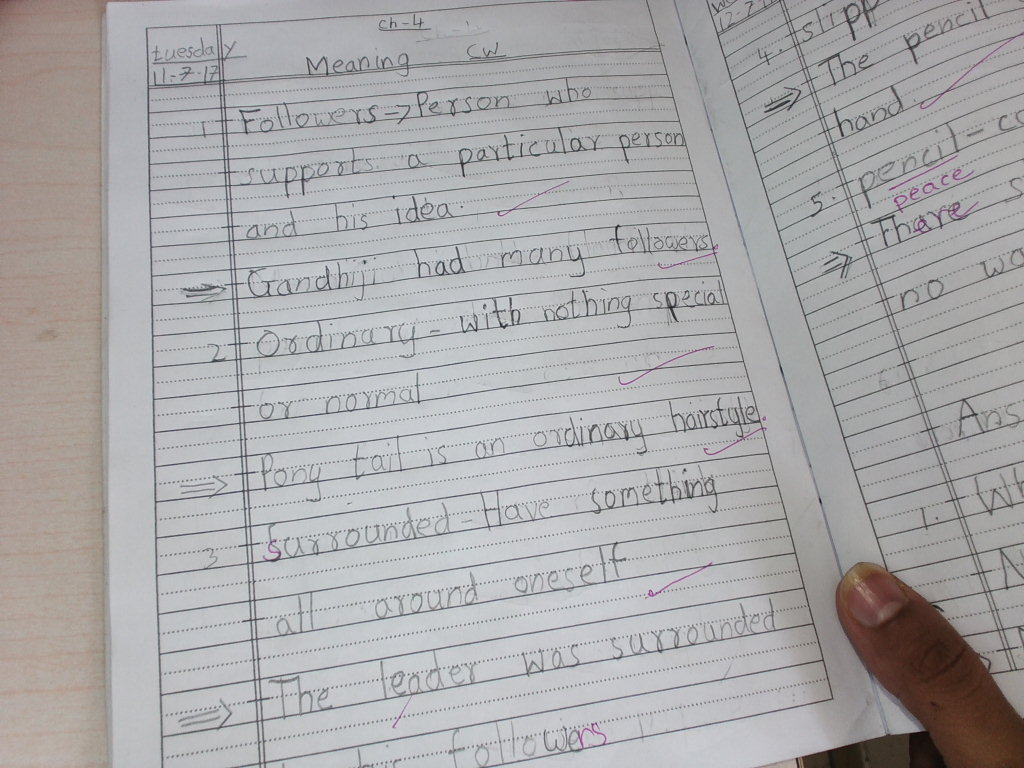 Ch-4
tuesday
11-7-17
Meaning CW
1 Followers => Person who
supports a particular person
and his idea.
=> Gandhiji had many followers.
2 Ordinary - with nothing special
or normal
=> Pony tail is an ordinary hairstyle.
3 Surrounded - Have something
all around oneself
=> The leader was surrounded
followers
12-7-
4. slipp
=> The pencil
hand
5. pencil - co
peace
=> Thare s
no wa
Ans
1. Wh